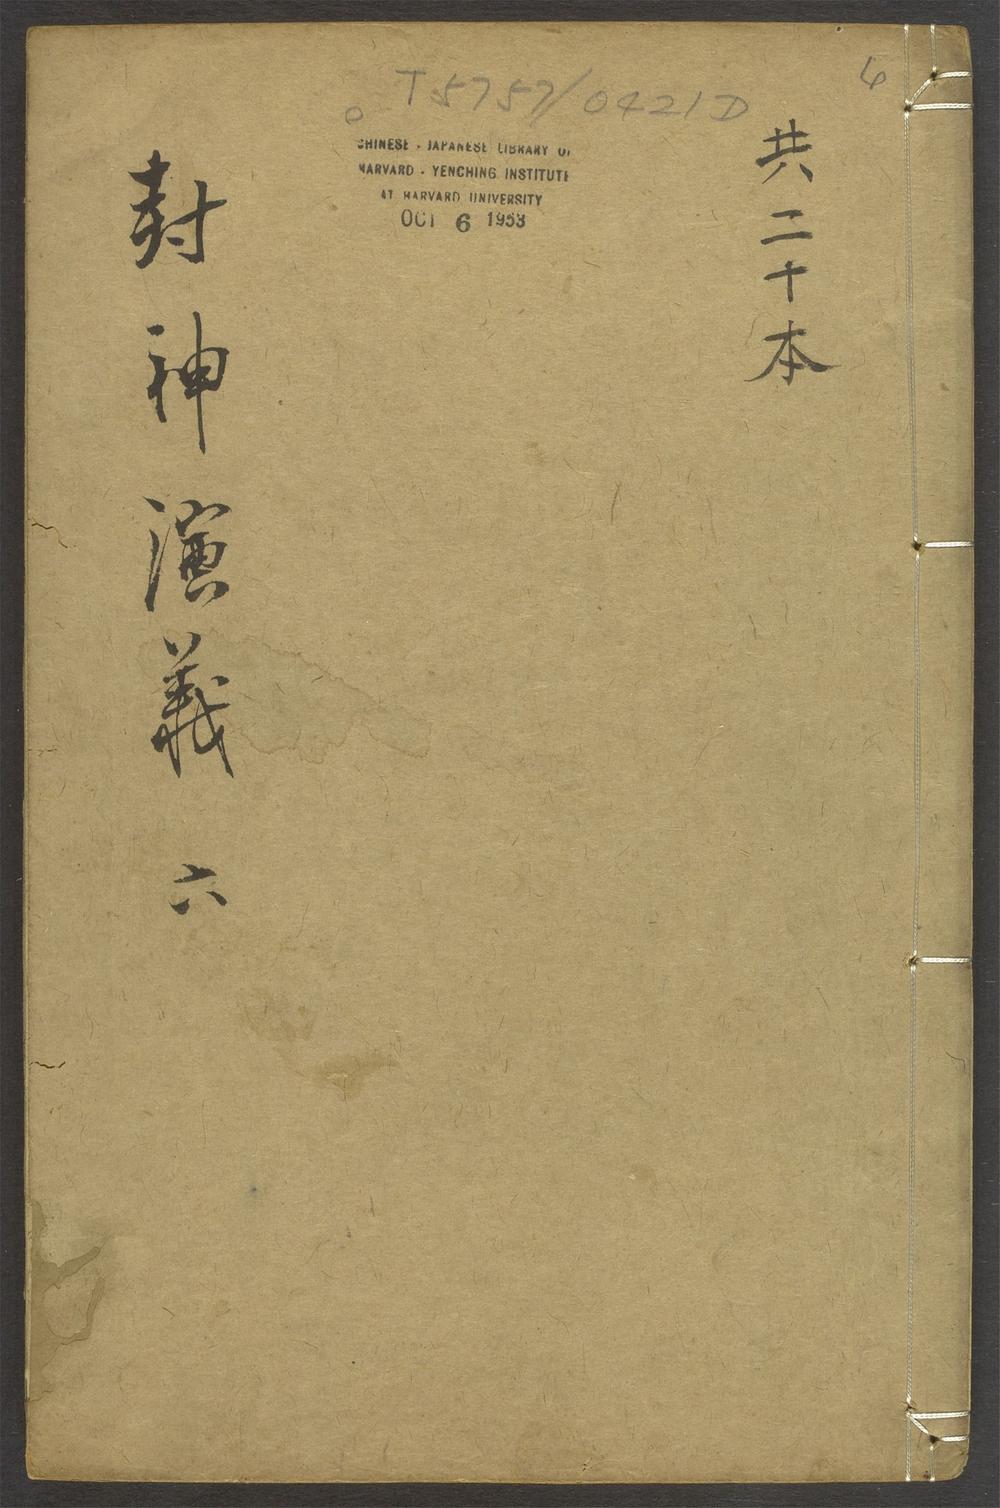 6
共二十本
T5757/0421D
CHINESE - JAPANESE LIBRARY OF
HARVARD - YENCHING INSTITUTE
AT HARVARD UNIVERSITY
OCT 6 1953
封神演義 六